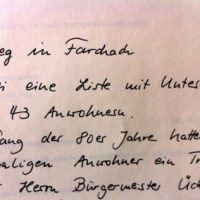 eg in Farchach
i eine Liste mit Unters
43 Anwohnern.
fang der 80er Jahre hatte
maligen Anwohner ein Tr
Herrn Bürgermeister Ück